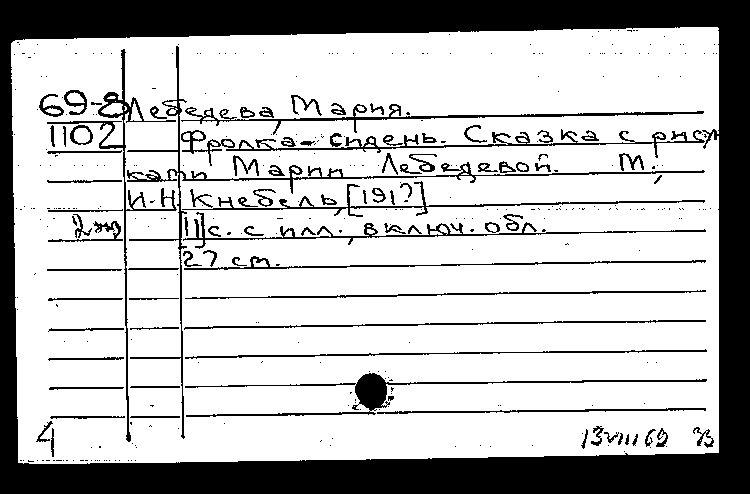 69-8 Лебедева, Мария.
1102 Фролка-сидень. Сказка с рисун
ками Марии Лебедевой. М.,
И.Н. Кнебель, [191?]
2 экз [11] с. с илл., включ. обл.
27 см.
4 13 VIII 69